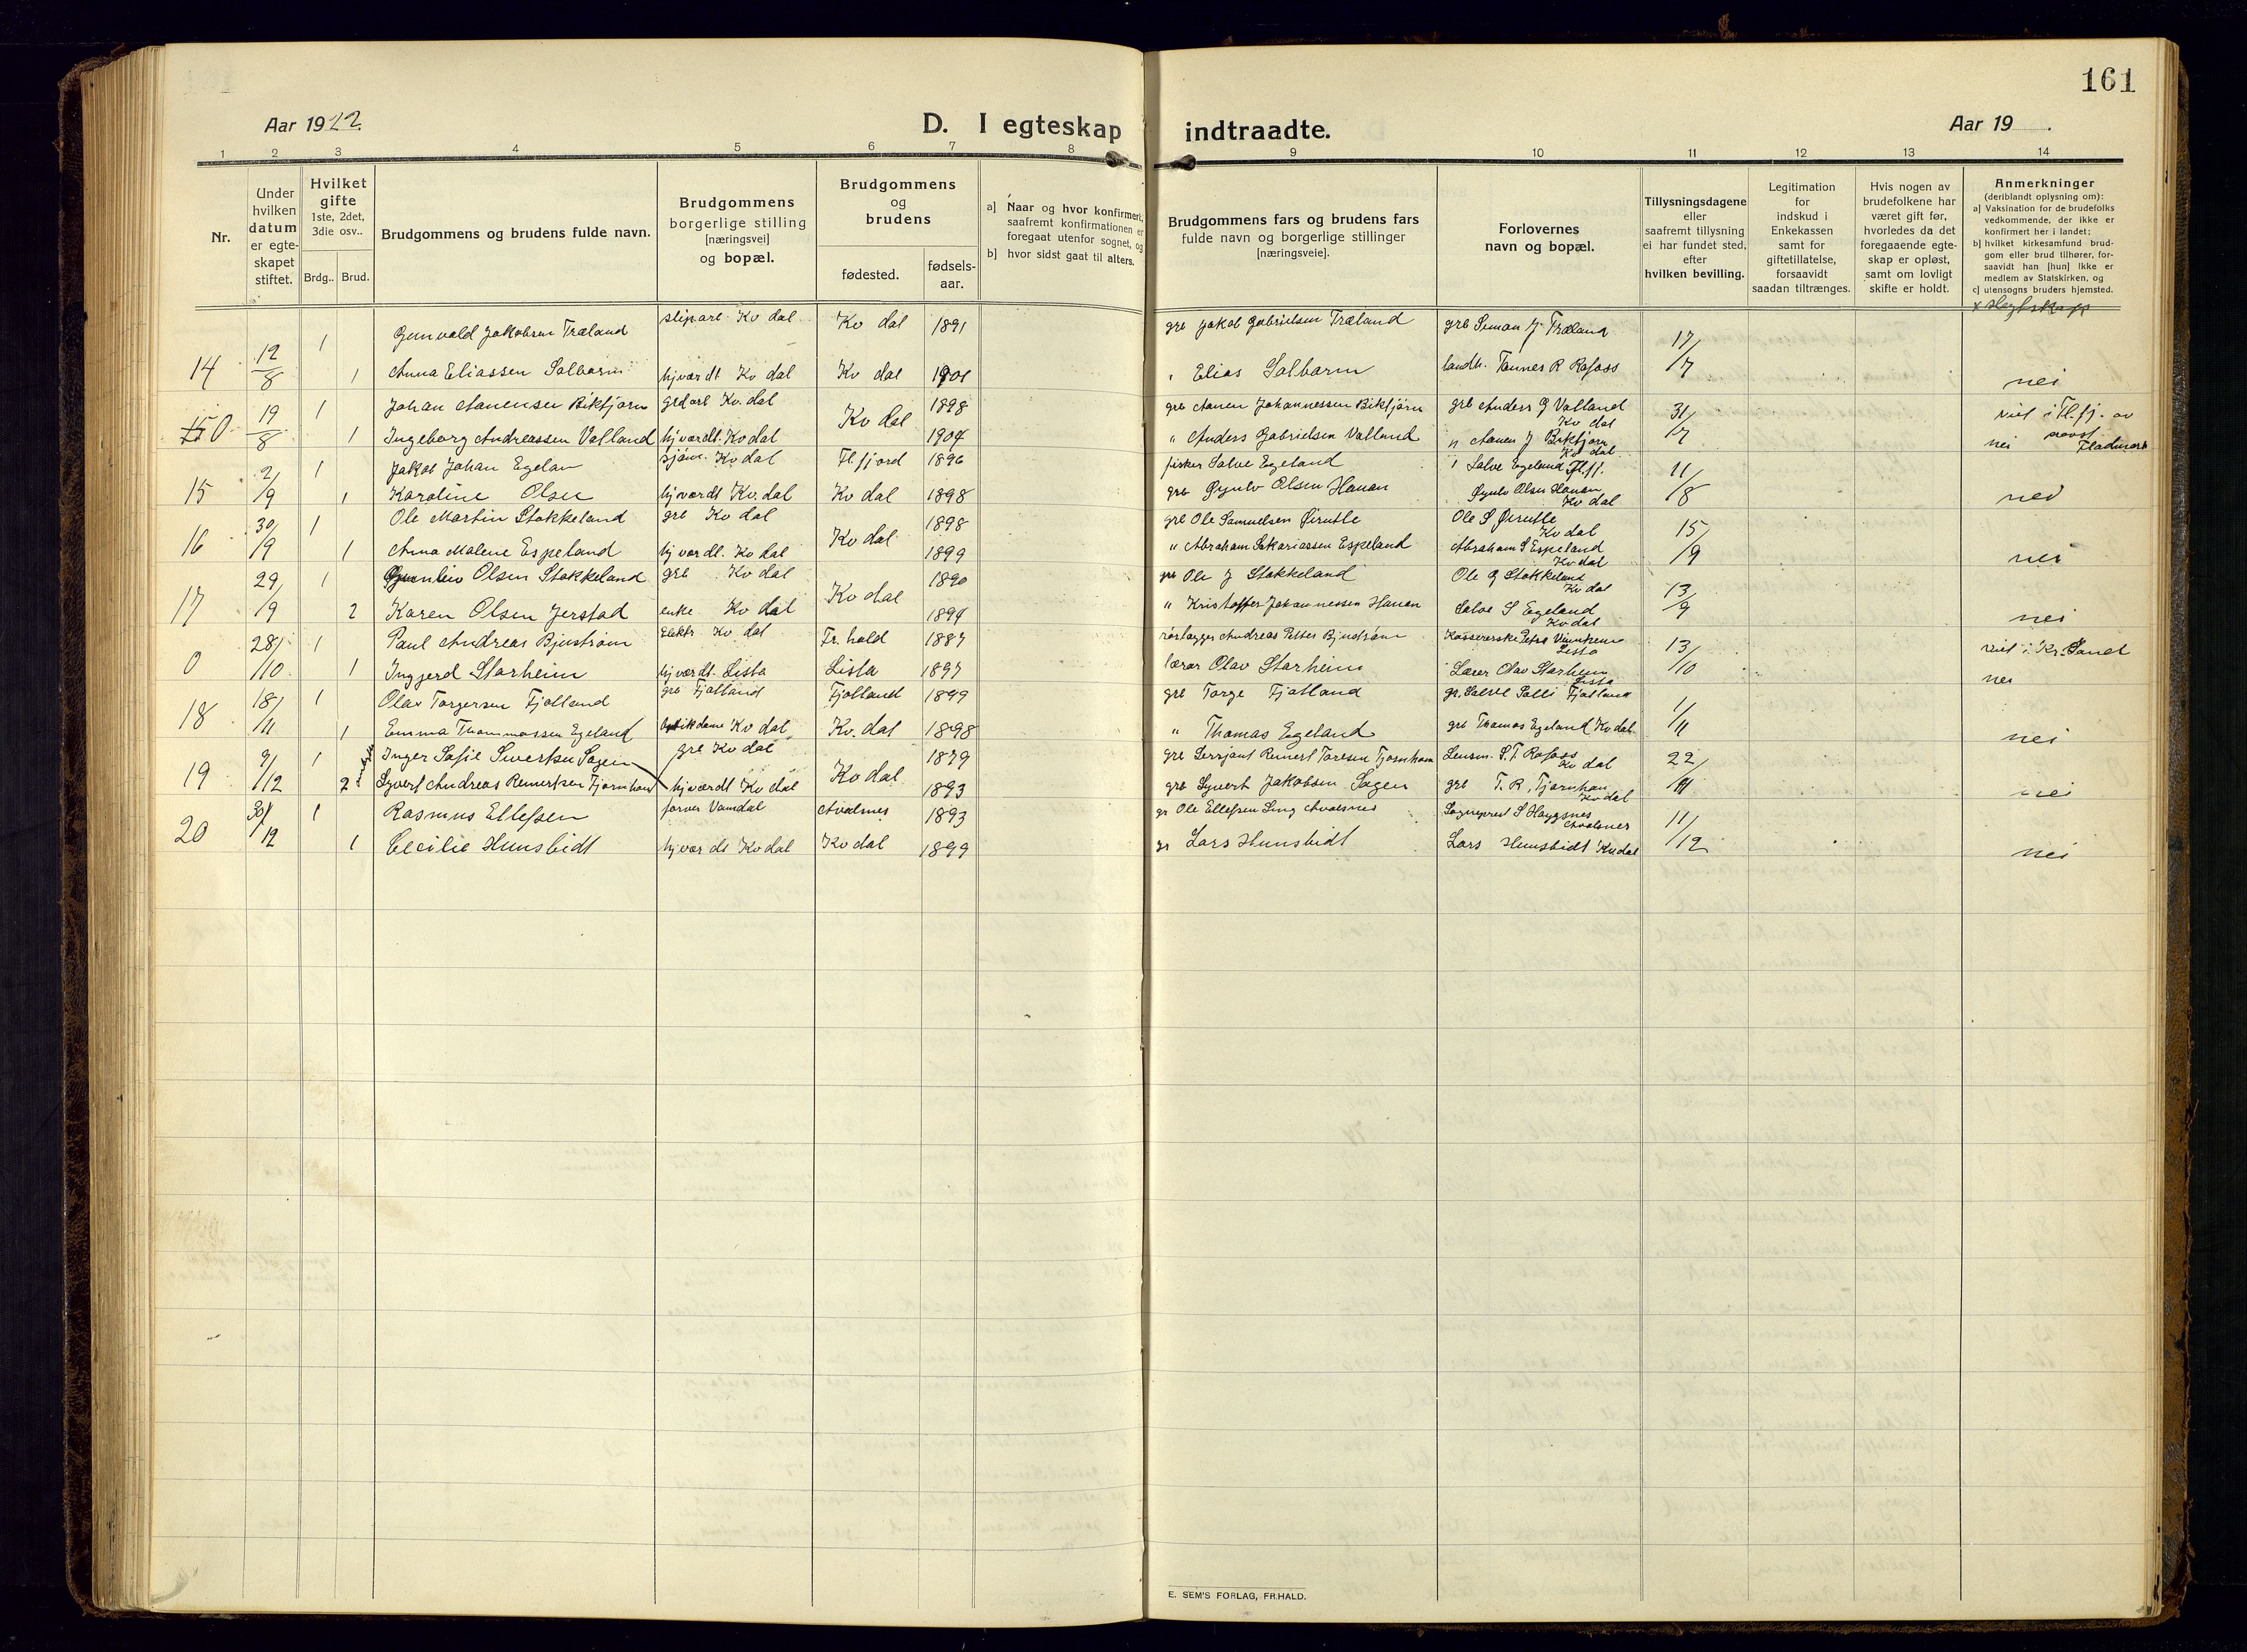 161
Aar 1922.
D. I egteskap indtraadte.
Aar 19 .
1 2 3 4 5 6 7 8 9 10 11 12 13 14
Nr.
Under hvilken datum er egteskapet stiftet.
Hvilket gifte 1ste, 2det, 3die osv..
Brdg.. Brud.
Brudgommens og brudens fulde navn.
Brudgommens borgerlige stilling [næringsvei] og bopæl.
Brudgommens og brudens
fødested. fødsels-aar.
a] Naar og hvor konfirmert, saafremt konfirmationen er foregaat utenfor sognet, og
b] hvor sidst gaat til alters.
Brudgommens fars og brudens fars fulde navn og borgerlige stillinger [næringsveie].
Forlovernes navn og bopæl.
Tillysningsdagene eller saafremt tillysning ei har fundet sted, efter hvilken bevilling.
Legitimation for indskud i Enkekassen samt for giftetillatelse, forsaavidt saadan tiltrænges.
Hvis nogen av brudefolkene har været gift før, hvorledes da det foregaaende egteskap er opløst, samt om lovligt skifte er holdt.
Anmerkninger
(deriblandt oplysning om):
a] Vaksination for de brudefolks vedkommende, der ikke er konfirmert her i landet;
b] hvilket kirkesamfund brudgom eller brud tilhører, forsaavidt han [hun] ikke er medlem av Statskirken, og
c] utensogns bruders hjemsted.
x slegtskap
14 12/8 1 Gunvald Jakobsen Træland sliparb. Kv dal Kv dal 1891 grb Jakob Gabrielsen Træland grb Simon J. Træland 17/7
1 Anna Eliassen Salbarm hjværdt Kv dal Kv dal 1901 " Elias Salbarm landh. Tønnes R Rafoss nei
0 19/8 1 Johan Aanensen Biktjørn grdarb Kv. dal Kv dal 1898 grb Aanen Johannessen Biktjørn grb Anders G Valland Kv dal 31/7 viet i Fl.fj. av provst Fladmark
1 Ingeborg Andreassen Valland hjværdt. Kv dal 1904 " Anders Gabrielsen Valland " Aanen J Biktjørn Kv dal nei
15 2/9 1 Jakob Johan Egeland sjøm. Kv dal Fl. fjord 1896 fisker Salve Egeland " Salve Egeland Fl.fj. 11/8
1 Karoline Olsen hjværdt Kv. dal Kv dal 1898 grb Øynlv Olsen Hanan Øynlv Olsen Hanan Kv dal nei
16 30/9 1 Ole Martin Stokkeland grb Kv dal Kv dal 1898 grb Ole Samuelsen Øirutle Ole S Øirutle Kv dal 15/9
1 Anna Malene Espeland hjværdt. Kv dal 1899 " Abraham Sakariassen Espeland Abraham S Espeland Kv dal nei
17 29/9 1 Gunleiv Olsen Stokkeland grb Kv dal Kv dal 1890 grb Ole J Stokkeland Ole G Stokkeland Kv dal 13/9
2 Karen Olsen Jerstad enke Kv dal 1894 " Kristoffer Johannessen Hanan Salve S Egeland Kv dal nei
0 28/10 1 Paul Andreas Bjustrøm Elektr. Kv dal Fr. hald 1887 rørlægger Andreas Petter Bjustrøm Kassererske Petra Lista 13/10 viet i Kr. Sand
1 Inggerd Starheim hjværdt. Lista Lista 1897 lærer Olav Starheim Lærer Olav Starheim Lista nei
18 18/11 1 Olav Torgersen Fjotland grb Fjotland Fjotland 1899 grb Torge Fjotland gr. Salve Salli Fjotland 1/11
1 Emma Thommassen Egeland butikdame Kv dal Kv. dal 1898 " Thomas Egeland grb Thomas Egeland Kv dal nei
19 9/12 1 Inger Sofie Sivertsen Sagen grb Kv dal Kv dal 1879 grb Serjant Reinert Toresen Tjørnhom Lensm. S. T. Rafoss Kv dal 22/11
2 Syvert Andreas Reinertsen Tjørnhom hjværdt Kv dal 1893 grb Syvert Jakobsen Sagen grb T. R. Tjørnhom Kv dal nei
20 30/12 1 Rasmus Ellefsen Avalsnes 1893 gr Ole Ellefsen Avalsnes Sogneprest S Avalsnes 11/12
1 Cecilie Hunsbidt hjværdt Kv dal Kv dal 1899 gr Lars Hunsbidt Lars Hunsbidt Kv dal nei
E. SEM'S FORLAG, FR.HALD.